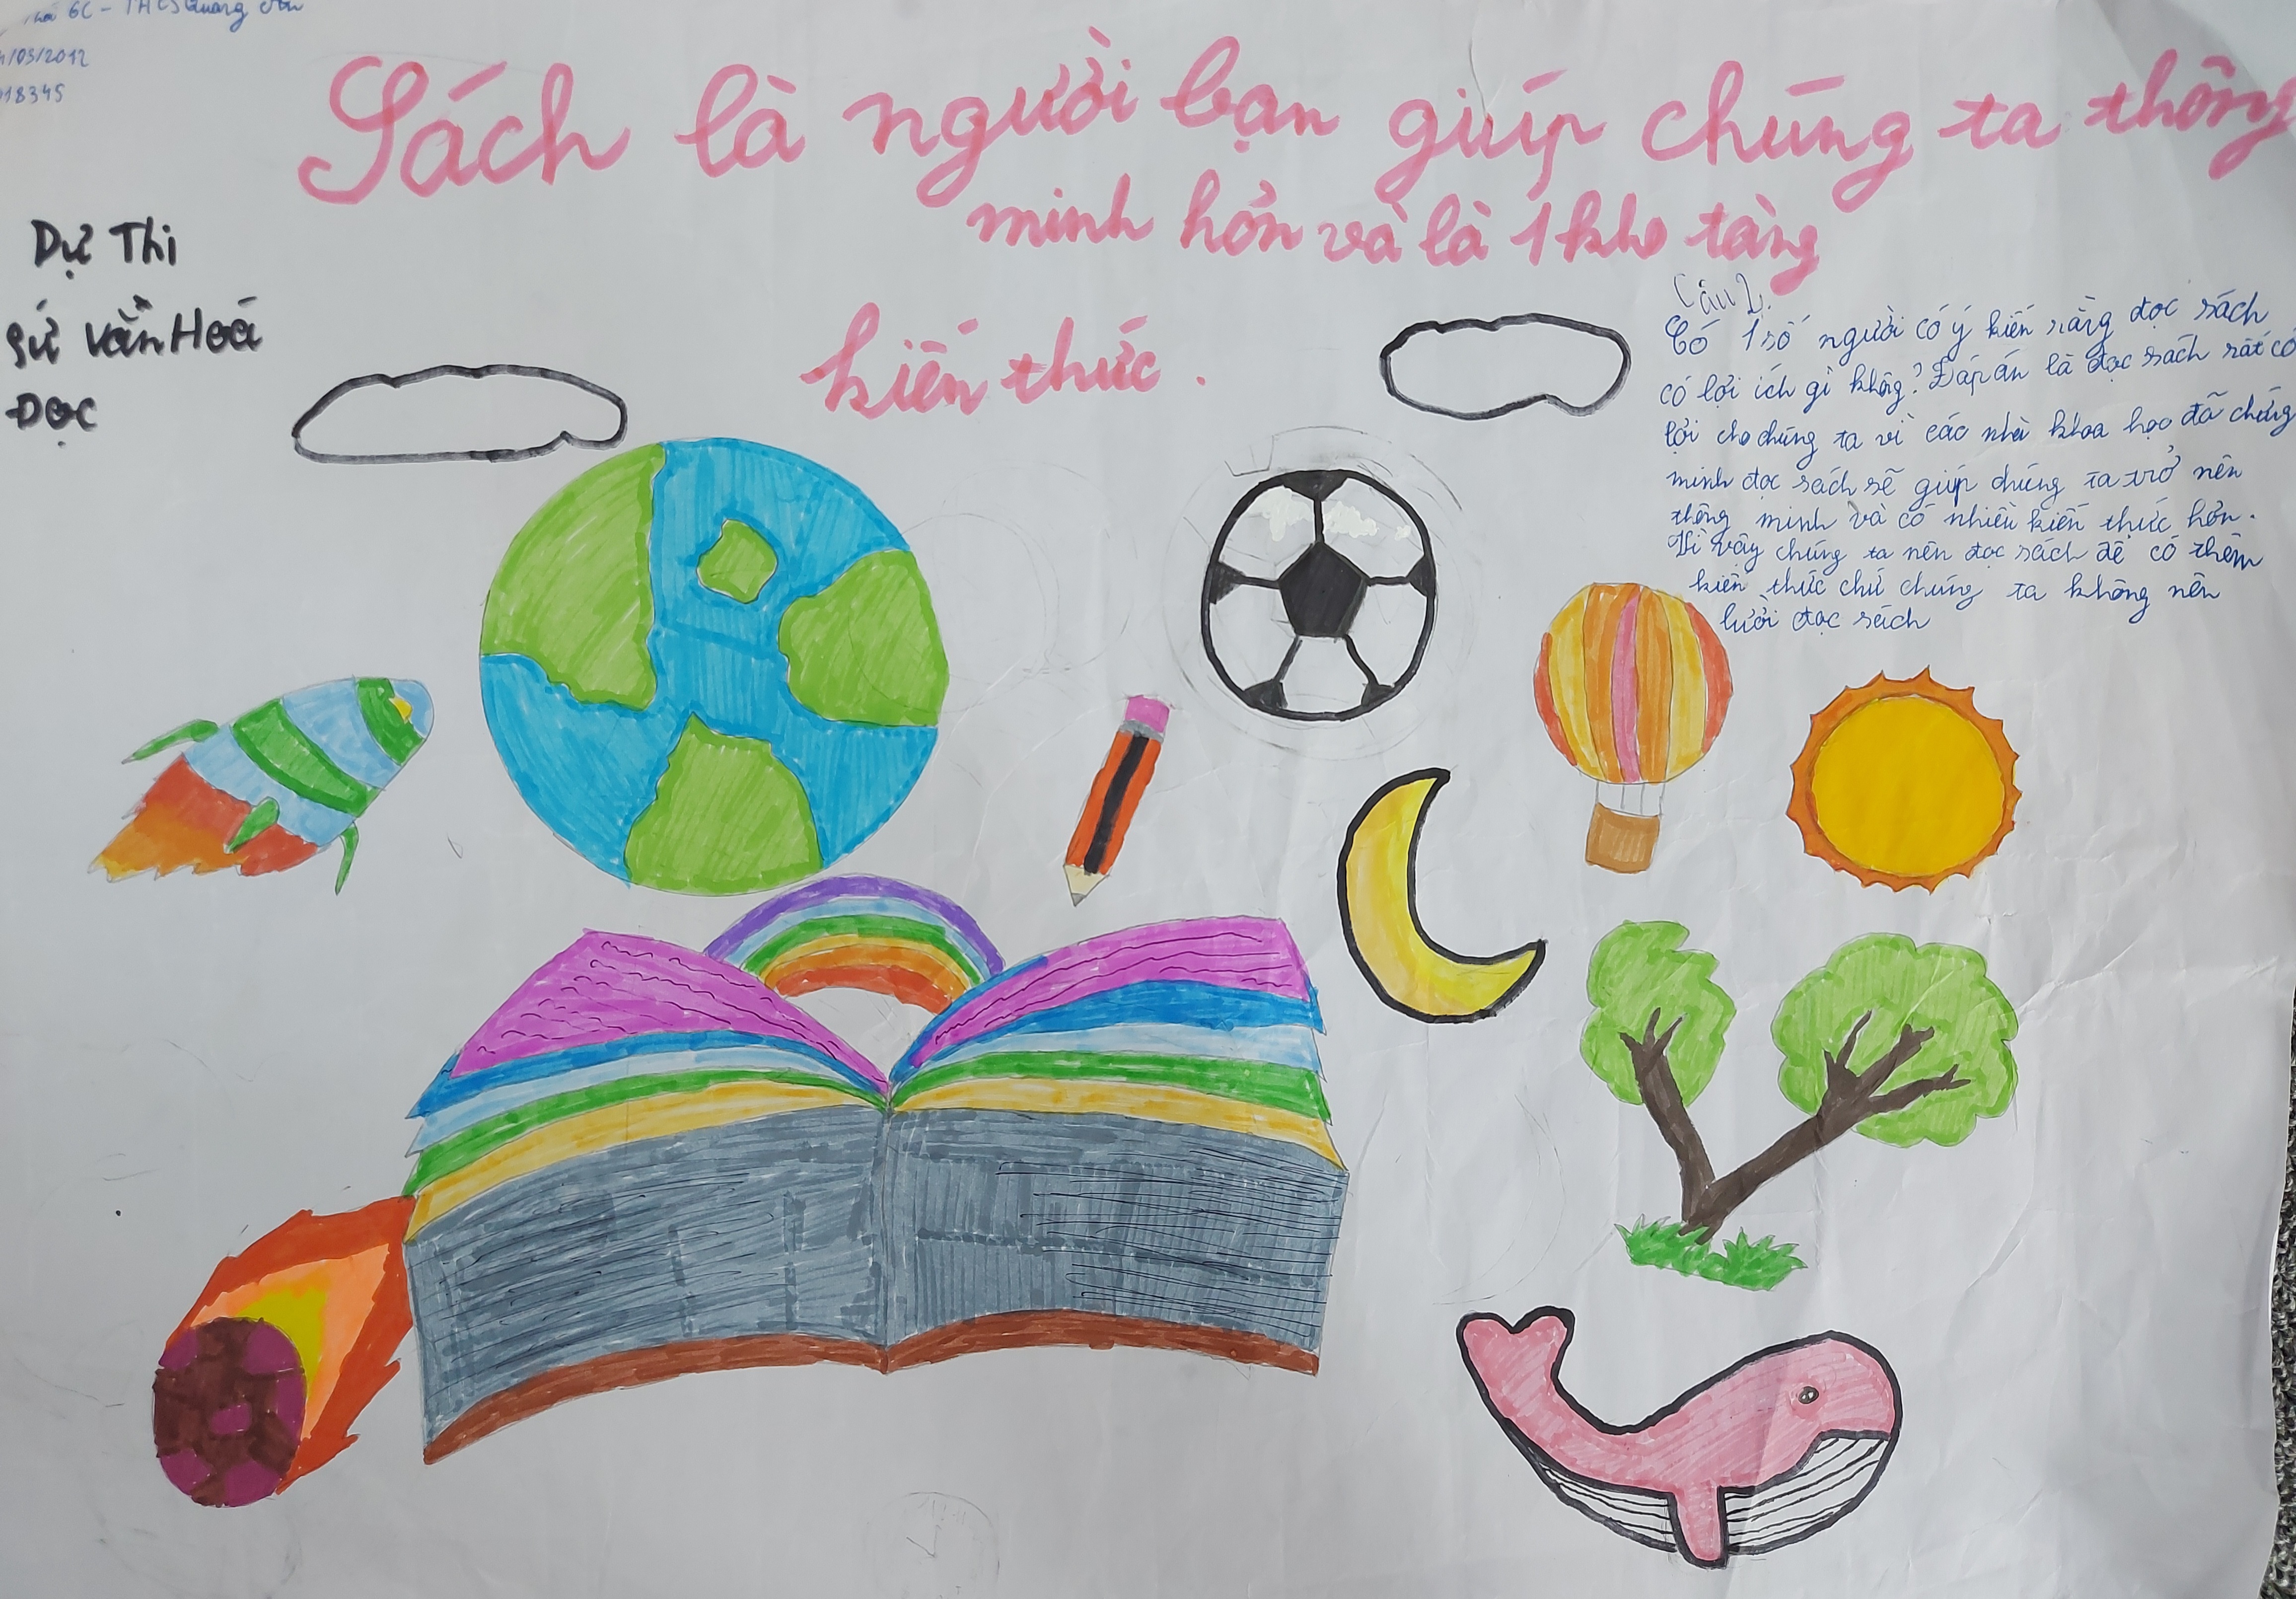 6C - THCS Quang
/03/2012
18345
Sách là người bạn giúp chúng ta thông
minh hơn và là 1 kho tàng
kiến thức.
Dự Thi
sứ Văn Hoá
Đọc
Câu 2.
Có 1 số người có ý kiến rằng đọc sách
có lợi ích gì không? Đáp án là đọc sách rất có
lợi cho chúng ta vì các nhà khoa học đã chứng
minh đọc sách sẽ giúp chúng ta trở nên
thông minh và có nhiều kiến thức hơn.
Vì vậy chúng ta nên đọc sách để có thêm
kiến thức chứ chúng ta không nên
lười đọc sách